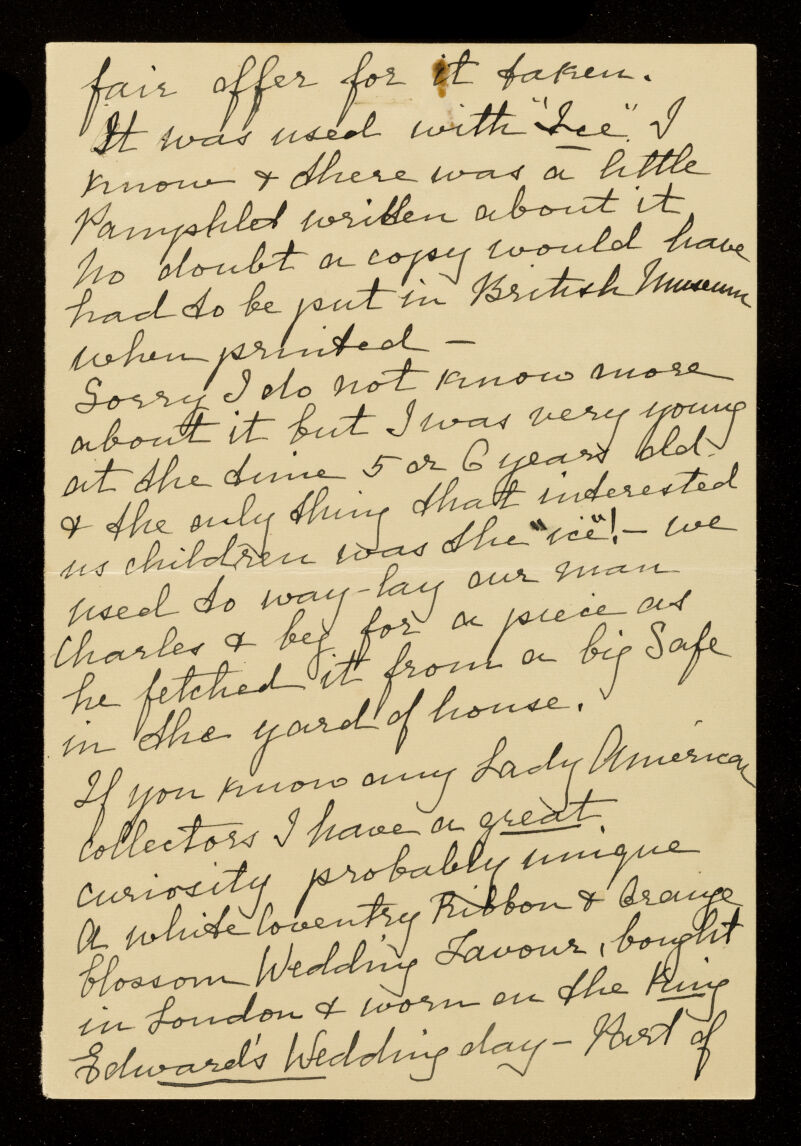 fair offer for it taken.
It was used with "Ice" I
know & there was a little
Pamphlet written about it
No doubt a copy would have
had to be put in British Museum
when printed –
Sorry I do not know more
about it but I was very young
at the time 5 or 6 years old
& the only thing that interested
us children was the "ice"! – we
used to way-lay our man
Charles & beg for a piece as
he fetched it from a big Safe
in the yard of house.
If you know any Lady American
collectors I have a great
curiosity probably unique
A white Coventry Ribbon & Orange
blossom Wedding Favour, bought
in London & worn on the King
Edward's Wedding day – Part of